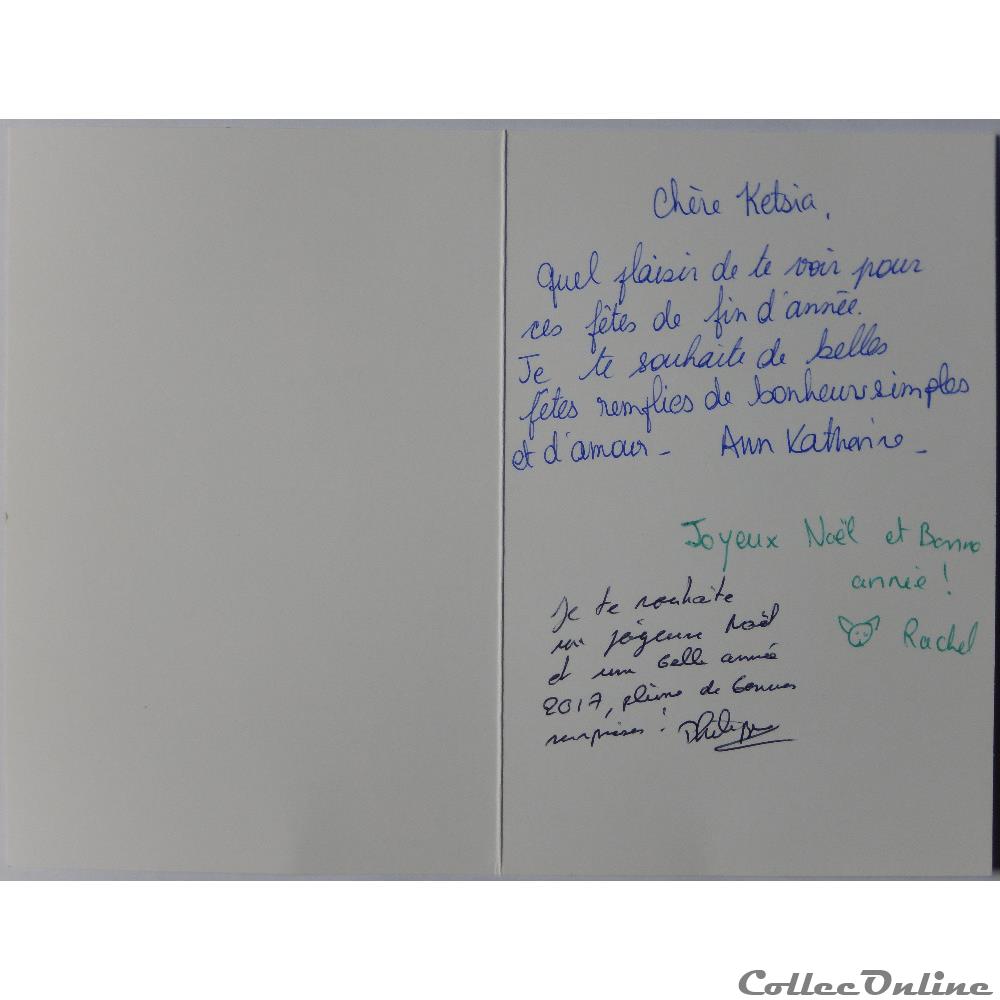 Chère Ketsia,
Quel plaisir de te voir pour
ces fêtes de fin d'année.
Je te souhaite de belles
fêtes remplies de bonheurs simples
et d'amour - Ann Katherine -
Joyeux Noël et Bonne
année !
Rachel
Je te souhaite
un joyeux Noël
et une belle année
2017, pleine de bonnes
surprises ! Philippe
CollecOnline